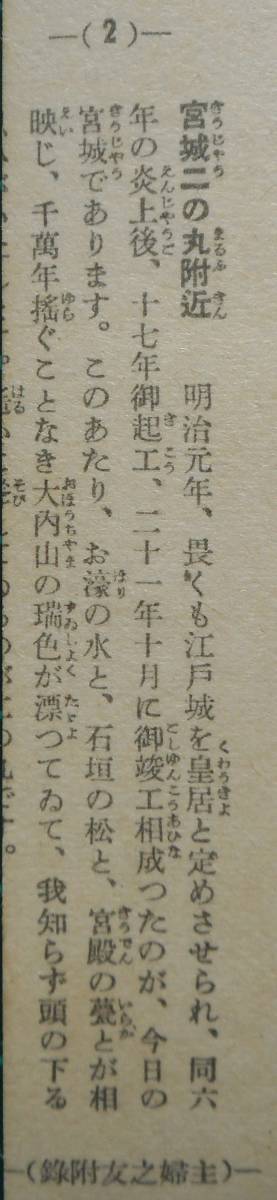 —( 2 )—
宮城二の丸附近　明治元年、畏くも江戸城を皇居と定めさせられ、同六
年の炎上後、十七年御起工、二十一年十月に御竣工相成つたのが、今日の
宮城であります。このあたり、お濠の水と、石垣の松と、宮殿の甍とが相
映じ、千萬年搖ぐことなき大内山の瑞色が漂つてゐて、我知らず頭の下る
—(主婦之友附錄)—